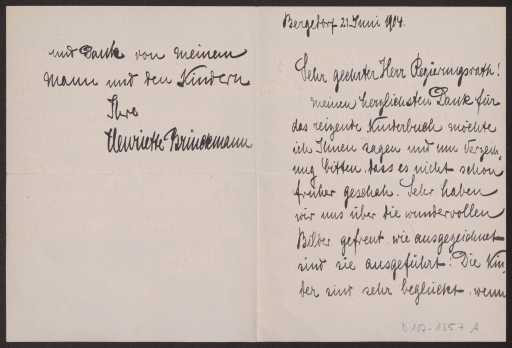 Bergedorf 21 Juni 1904.
Sehr geehrter Herr Regierungsrath!
Meinen herzlichsten Dank für
das reizende Kinderbuch möchte
ich Ihnen sagen und um Verzei-
ung bitten, dass es nicht schon
früher geschah. Sehr haben
wir uns über die wundervollen
Bilder gefreut, wie ausgezeichnet
sind sie ausgeführt! Die Kin-
der sind sehr beglückt, wenn
und Dank von meinem
Mann und den Kindern
Ihre
Henriette Brinckmann